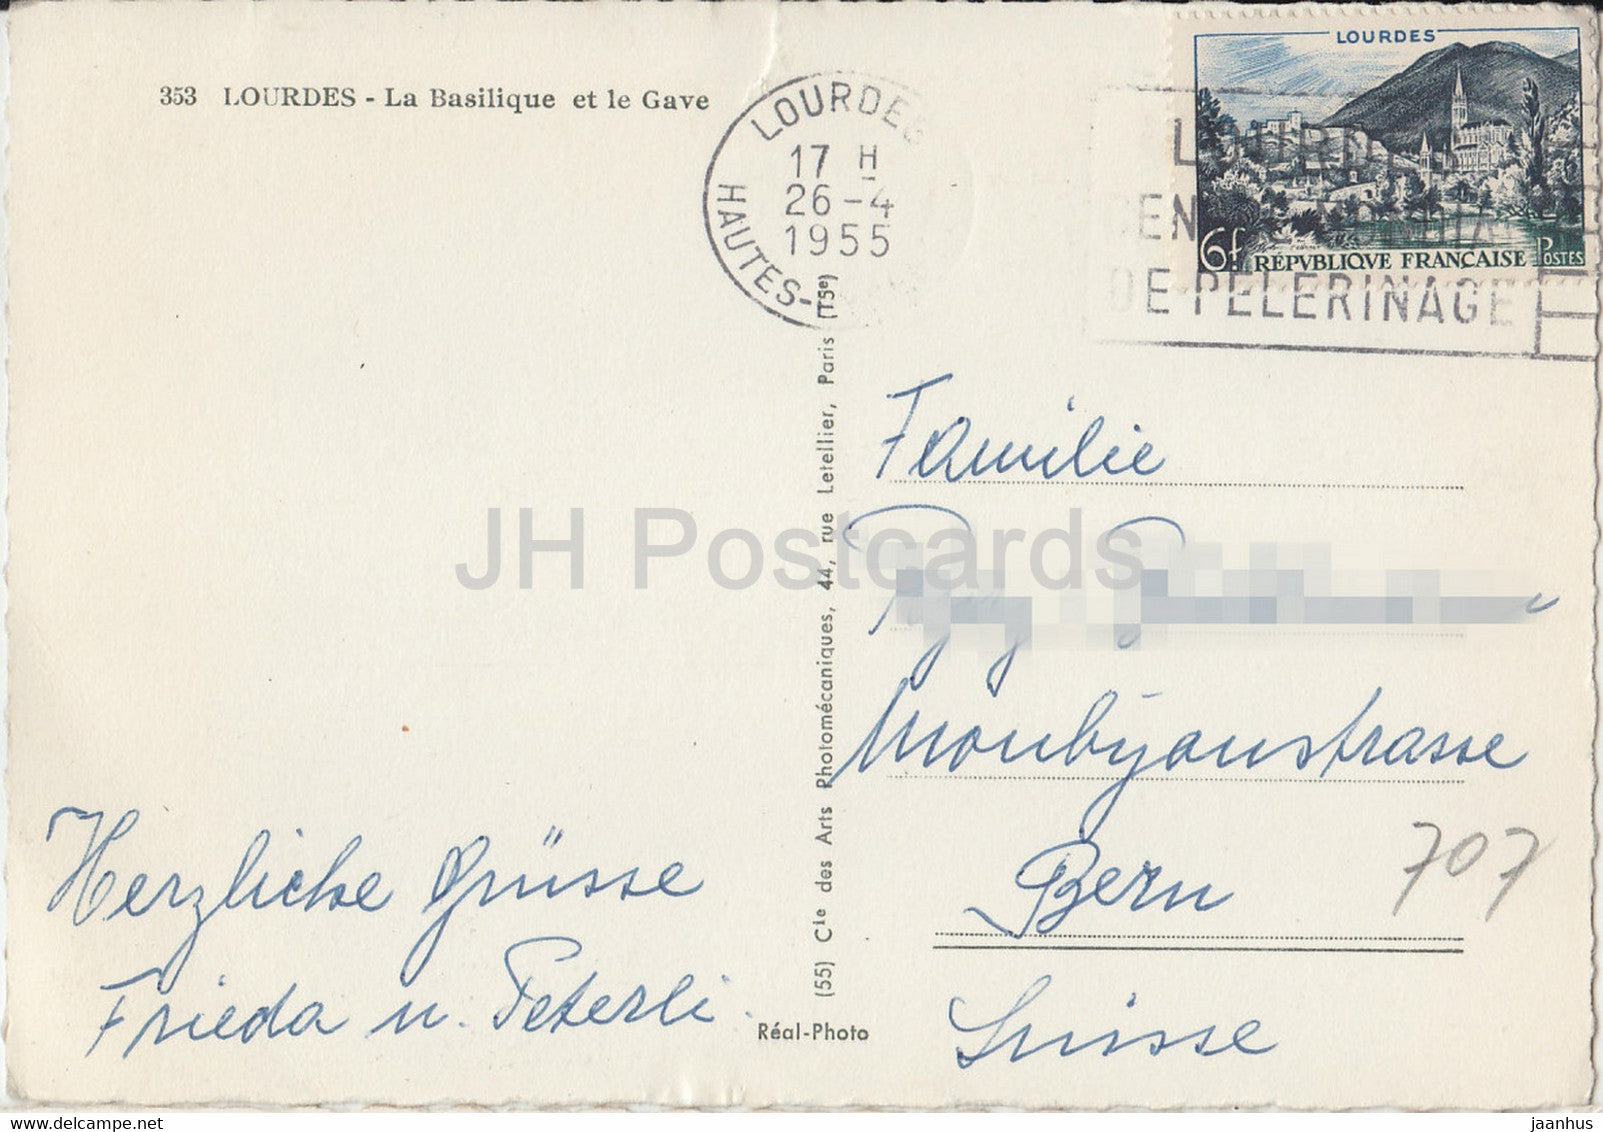 353 LOURDES - La Basilique et le Gave
LOURDES
17 H
26-4
1955
HAUTES-
LOURDES
6f RÉPVBLIQVE FRANÇAISE POSTES
LOURDES
DE PELERINAGE
Familie
Monbijoustrasse
Bern
Suisse
707
Herzliche Grüsse
Frieda u. Peterli.
(55) Cie des Arts Photomécaniques, 44, rue Letellier, Paris (15e)
Réal-Photo
JH Postcards
hippostcard.com/store/jh-postcards
jaanhus